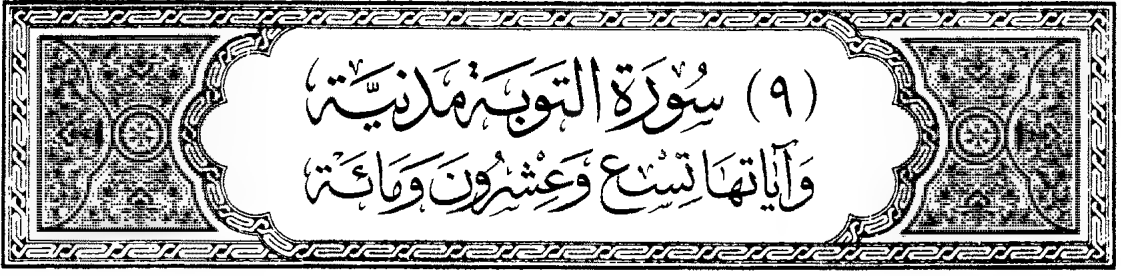 (٩) سُوْرَةُ التَّوبَةِ مَدَنِيَّة
وَآيَاتُهَا تِسْع وَعِشْرُونَ وَمَائَة